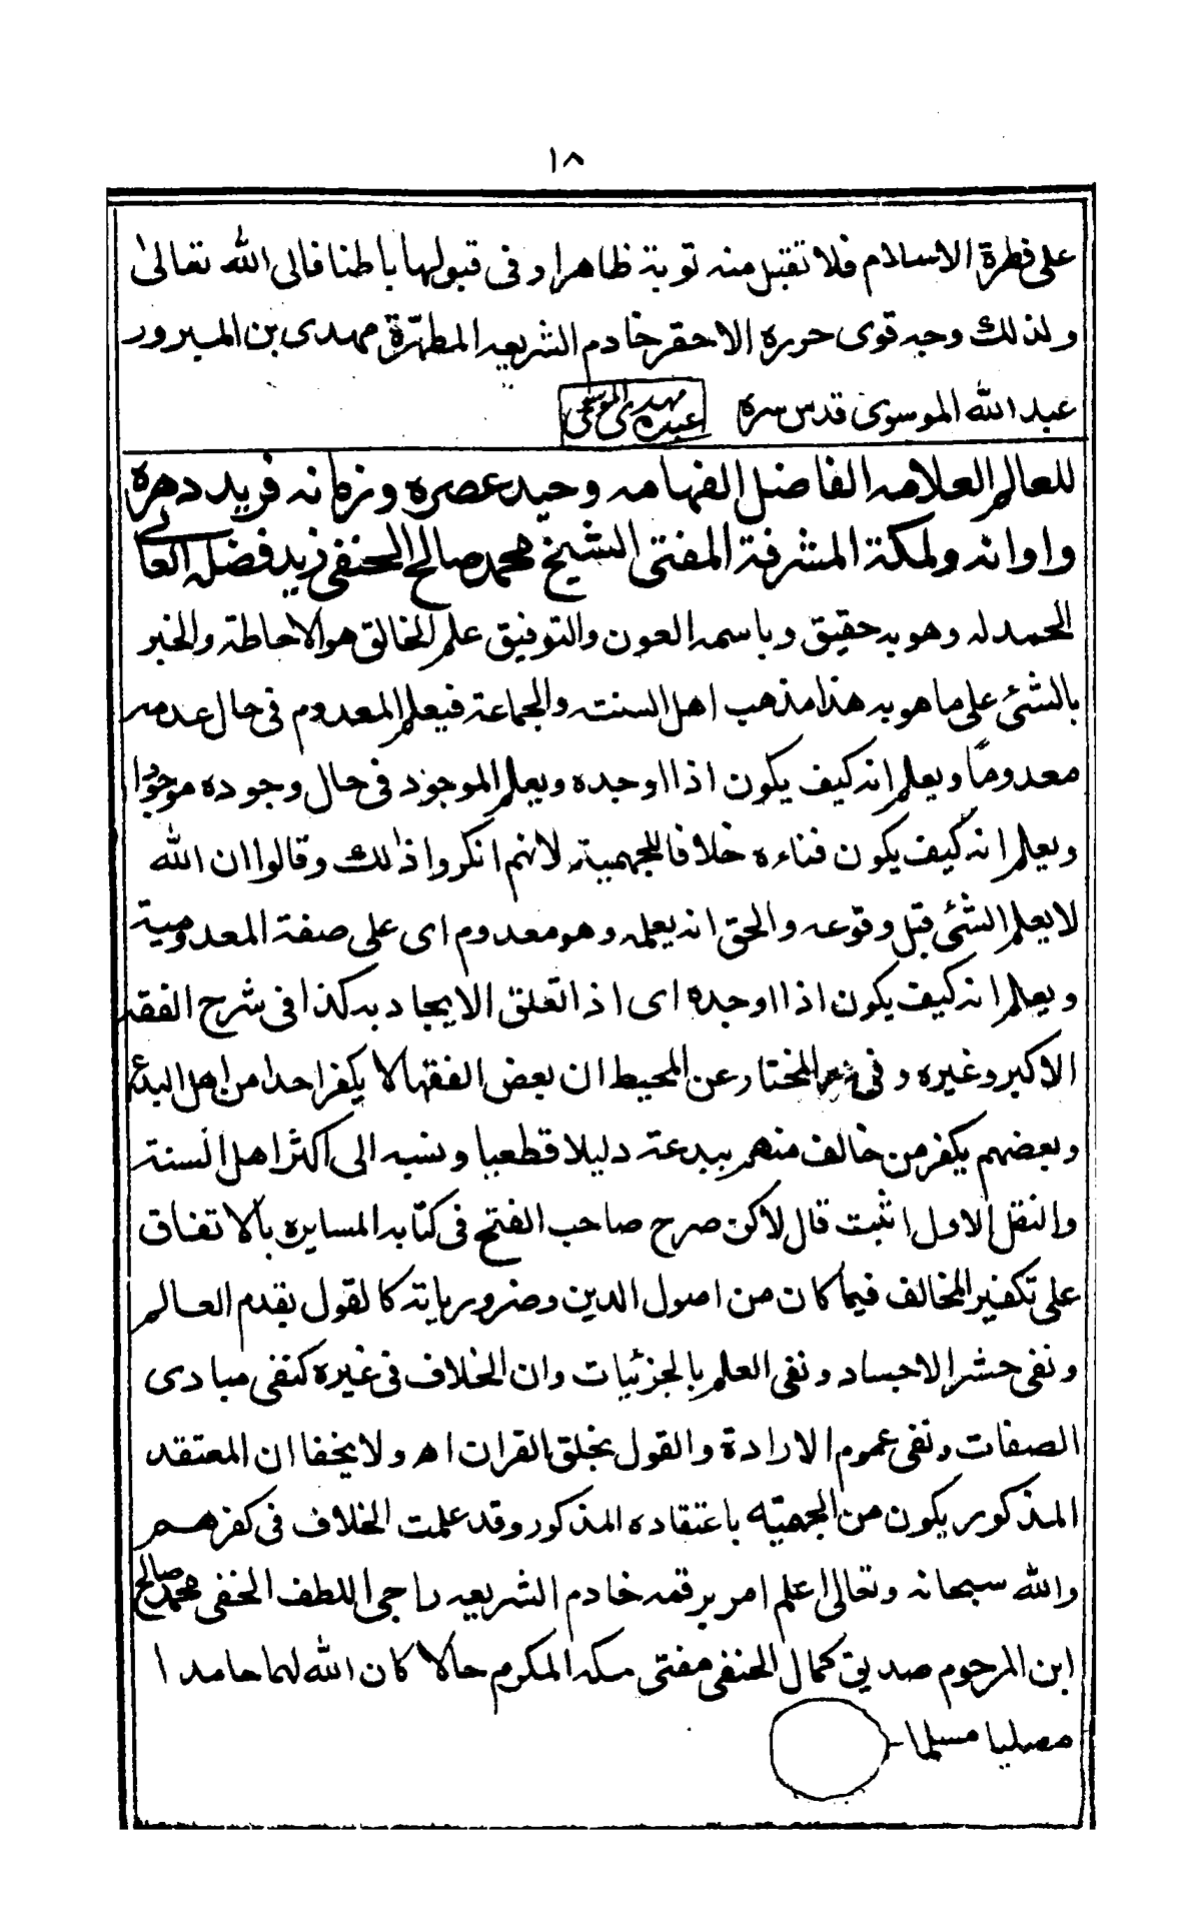 ١٨
على فطرة الاسلام فلا تقبل منه توبة ظاهرا وفى قبولها باطنا فالى الله تعالىٰ
ولذلك وجه قوى حرره الاحقر خادم الشريعه المطهّرة مهدى بن المبرور
عبد الله الموسوى قدس سره عبده مهدى الموسوى
للعالم العلامه الفاضل الفهامه وحيد عصره وزمانه فريد دهره
واوانه ولمكة المشرفة المفتى الشيخ محمد صالح الحنفى زيد فضله العالى
الحمد له وهو به حقيق وباسمه العون والتوفيق علم الخالق هو الاحاطة والخبر
بالشئ على ما هو به هذا مذهب اهل السنت والجماعة فيعلم المعدوم فى حال عدمه
معدومًا ويعلم انه كيف يكون اذا اوجده ويعلم الموجود فى حال وجوده موجودا
ويعلم انه كيف يكون فناءه خلافا للجهمية لانهم انكروا ذلك وقالوا ان الله
لا يعلم الشئ قبل وقوعه والحق انه يعلمه وهو معدوم اى على صفة المعدومية
ويعلم انه كيف يكون اذا اوجده اى اذ اتعلق الايجاد به كذا فى شرح الفقه
الاكبر وغيره وفى المختار عن المحيط ان بعض الفقها لا يكفر احدا من اهل البدع
وبعضهم يكفر من خالف منهم ببدعة دليلا قطعيا ونسبه الى اكثر اهل السنة
والنقل الاول اثبت قال لاكن صرح صاحب الفتح فى كتابه المسايره بالاتفاق
على تكفير المخالف فيما كان من اصول الدين وضرورياته كالقول بقدم العالم
ونفى حشر الاجساد ونفى العلم بالجزئيات وان الخلاف فى غيره كنفى مبادى
الصفات ونفى عموم الارادة والقول بخلق القران اه ولا يخفا ان المعتقد
المذكور يكون من الجهميه باعتقاده المذكور وقد علمت الخلاف فى كفرهم
والله سبحانه وتعالى اعلم امر برقمه خادم الشريعه راجى اللطف الخفى محمد صالح
ابن المرحوم صديق كمال الحنفى مفتى مكه المكرم حالا كان الله لهما حامدا
مصليا مسلما